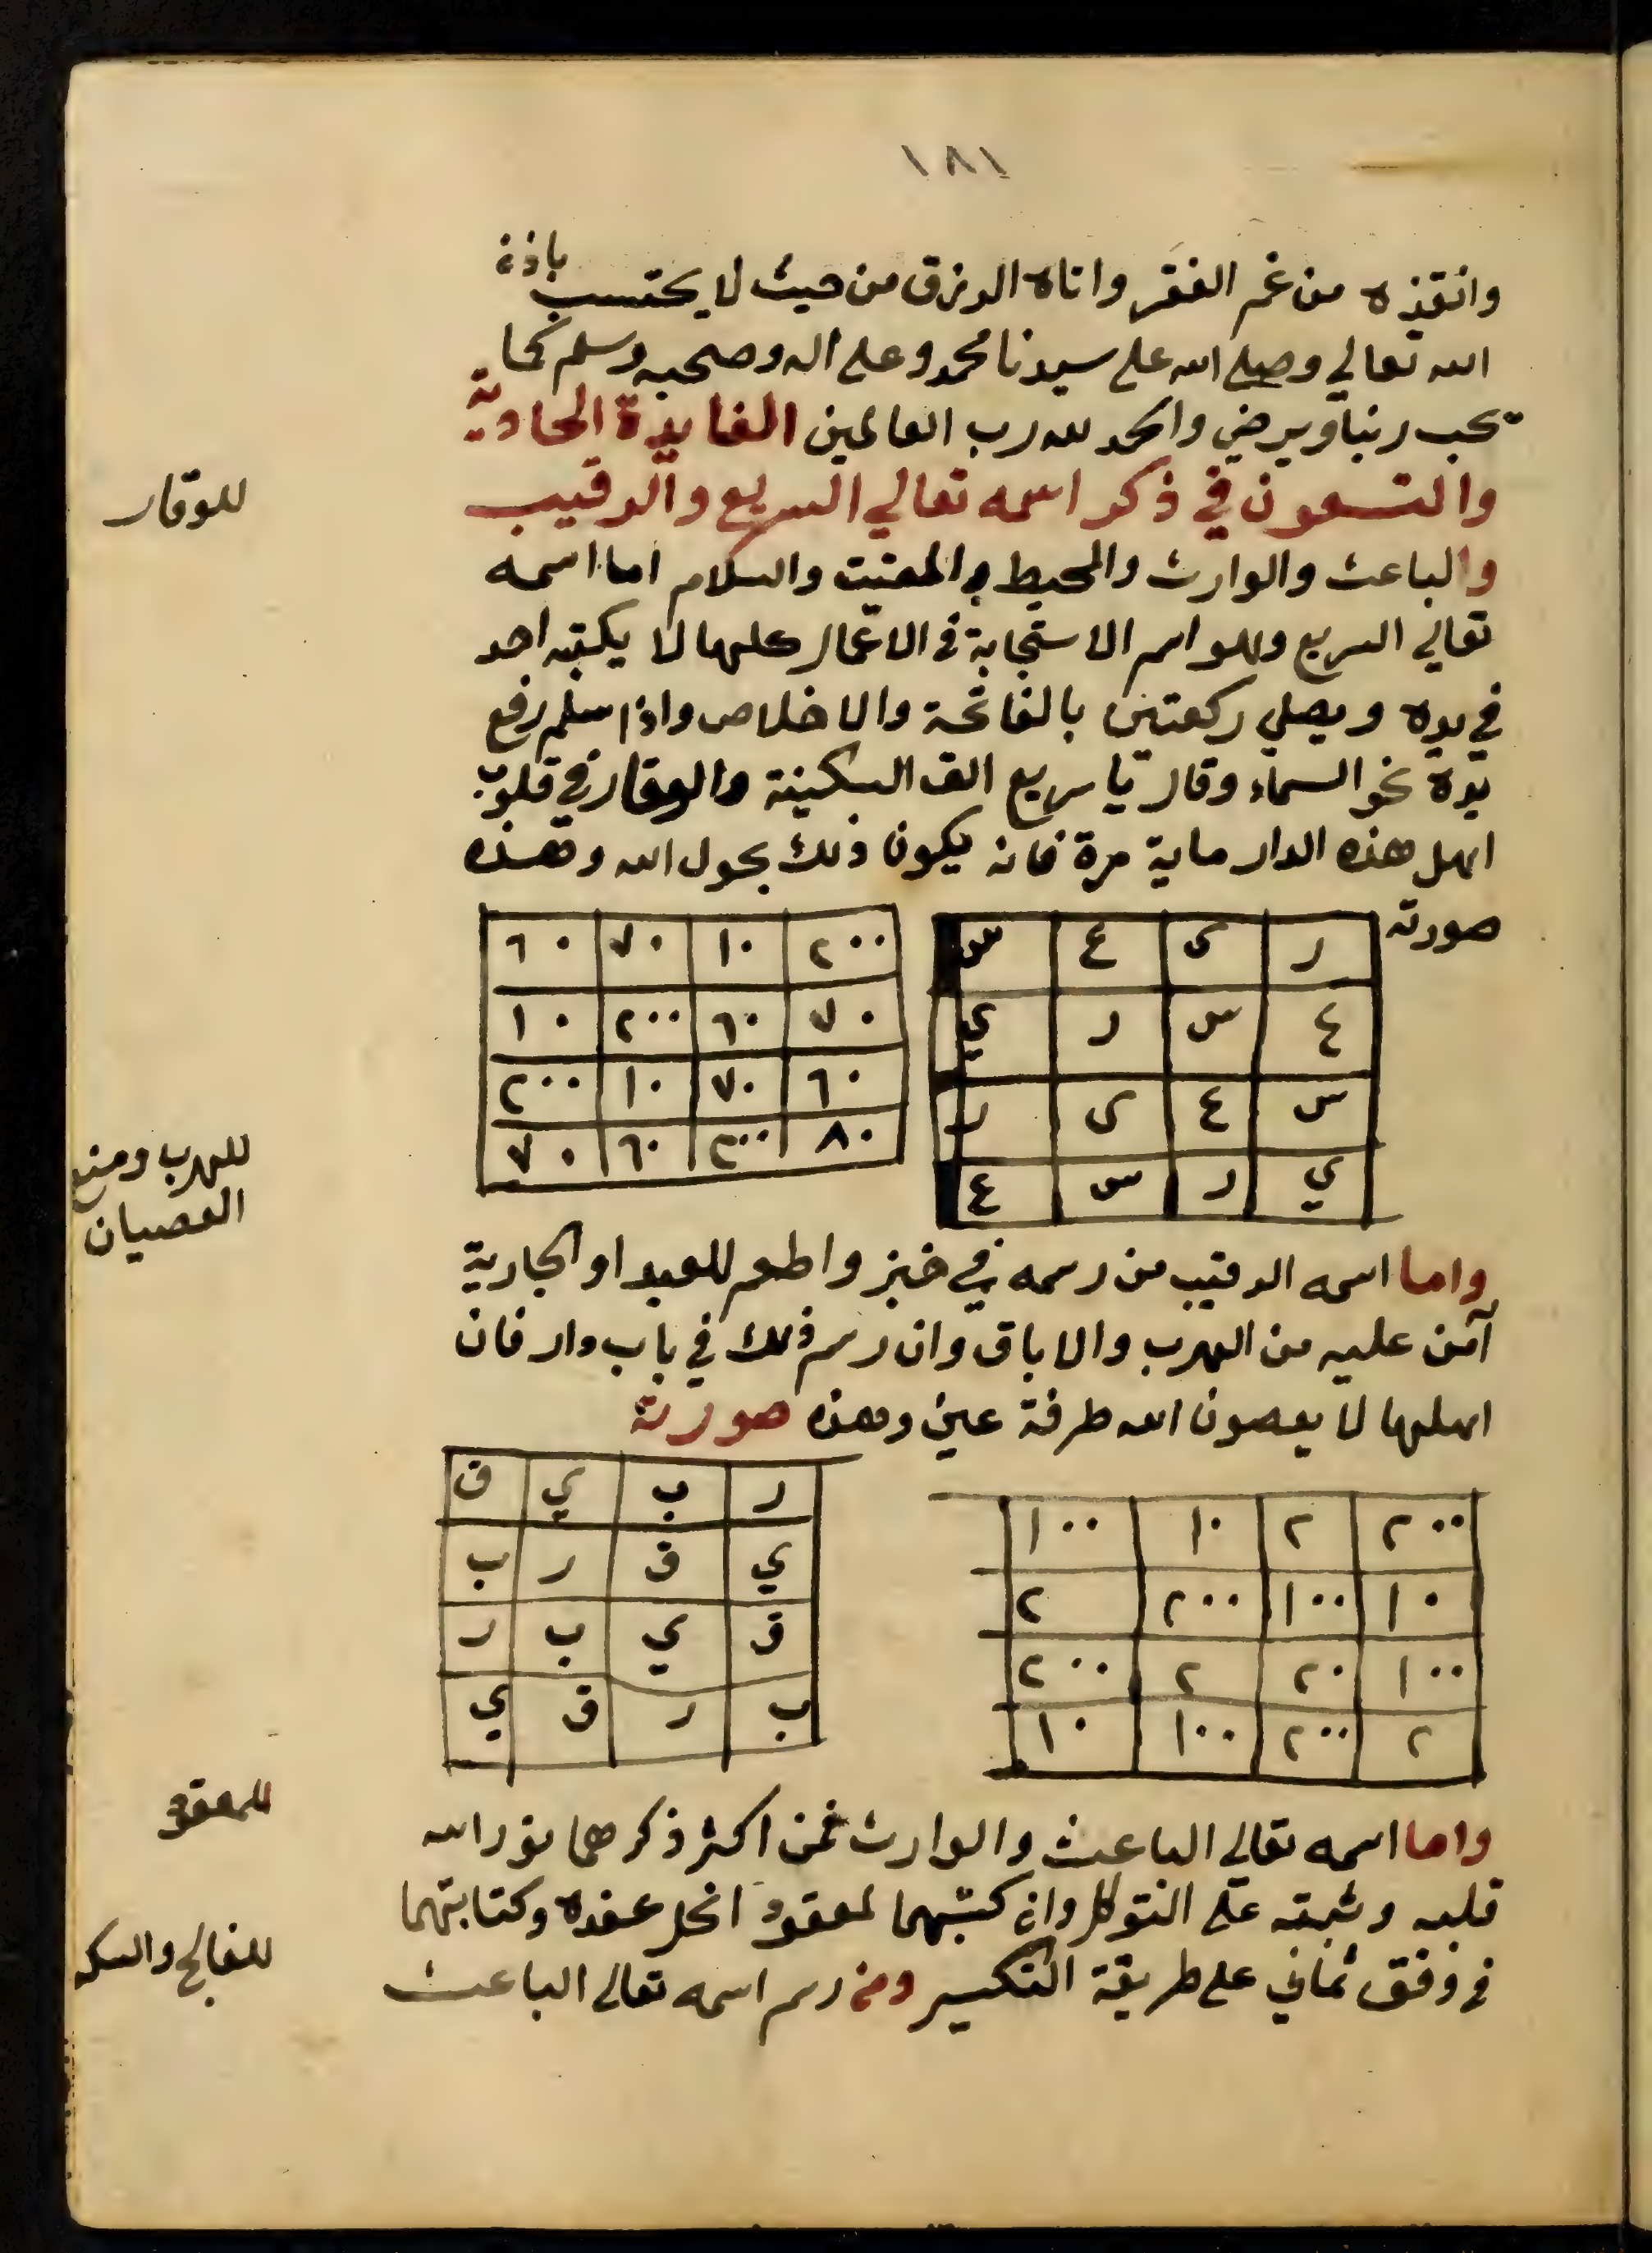 ١٨١
وانقذه من غم الفقر واتاه الرزق من حيث لا يحتسب باذن
الله تعالي وصلي الله علي سيدنا محمد وعلي اله وصحبه وسلم كما
يحب ربنا ويرضي والحمد لله رب العالمين الفايدة الحادية
والتسعون في ذكر اسمه تعالي السريع والرقيب
للوقار
والباعث والوارث والمحيط والمقيت والسلام اما اسمه
تعالي السريع وهو اسم الاستجابة في الاعمال كلها لا يكتبه احد
في يده ويصلي ركعتين بالفاتحة والاخلاص واذا سلم رفع
يده نحو السماء وقال يا سريع الق السكينة والوقار في قلوب
اهل هذه الدار ماية مرة فانه يكون ذلك بحول الله وهذه
صورته
ر ى ع س
ع س ر ي
س ع ى ر
ي ر س ع
٢٠٠ ١٠ ٧٠ ٦٠
٧٠ ٦٠ ٢٠٠ ١٠
٦٠ ٧٠ ١٠ ٢٠٠
٨٠ ٢٠٠ ٦٠ ٧٠
للهرب ومنع
العصيان
واما اسمه الرقيب من رسمه في خبز واطعم للعبد او الجارية
آمن عليه من الهرب والاباق وان رسم ذلك في باب دار فان
اهلها لا يعصون الله طرفة عين وهذه صورته
٢٠٠ ٢ ١٠ ١٠٠
١٠ ١٠٠ ٢٠٠ ٢
١٠٠ ٢٠ ٢ ٢٠٠
٢ ٢٠٠ ١٠٠ ١٠
ر ب ي ق
ي ق ر ب
ق ي ب ر
ب ر ق ي
للمعقود
واما اسمه تعالي الباعث والوارث فمن اكثر ذكرهما نور الله
قلبه وثبته علي التوكل وان كتبهما لمعقود انحل عقده وكتابتهما
للفالج والسكه
في وفق ثماني علي طريقة التكسير ومن رسم اسمه تعالي الباعث